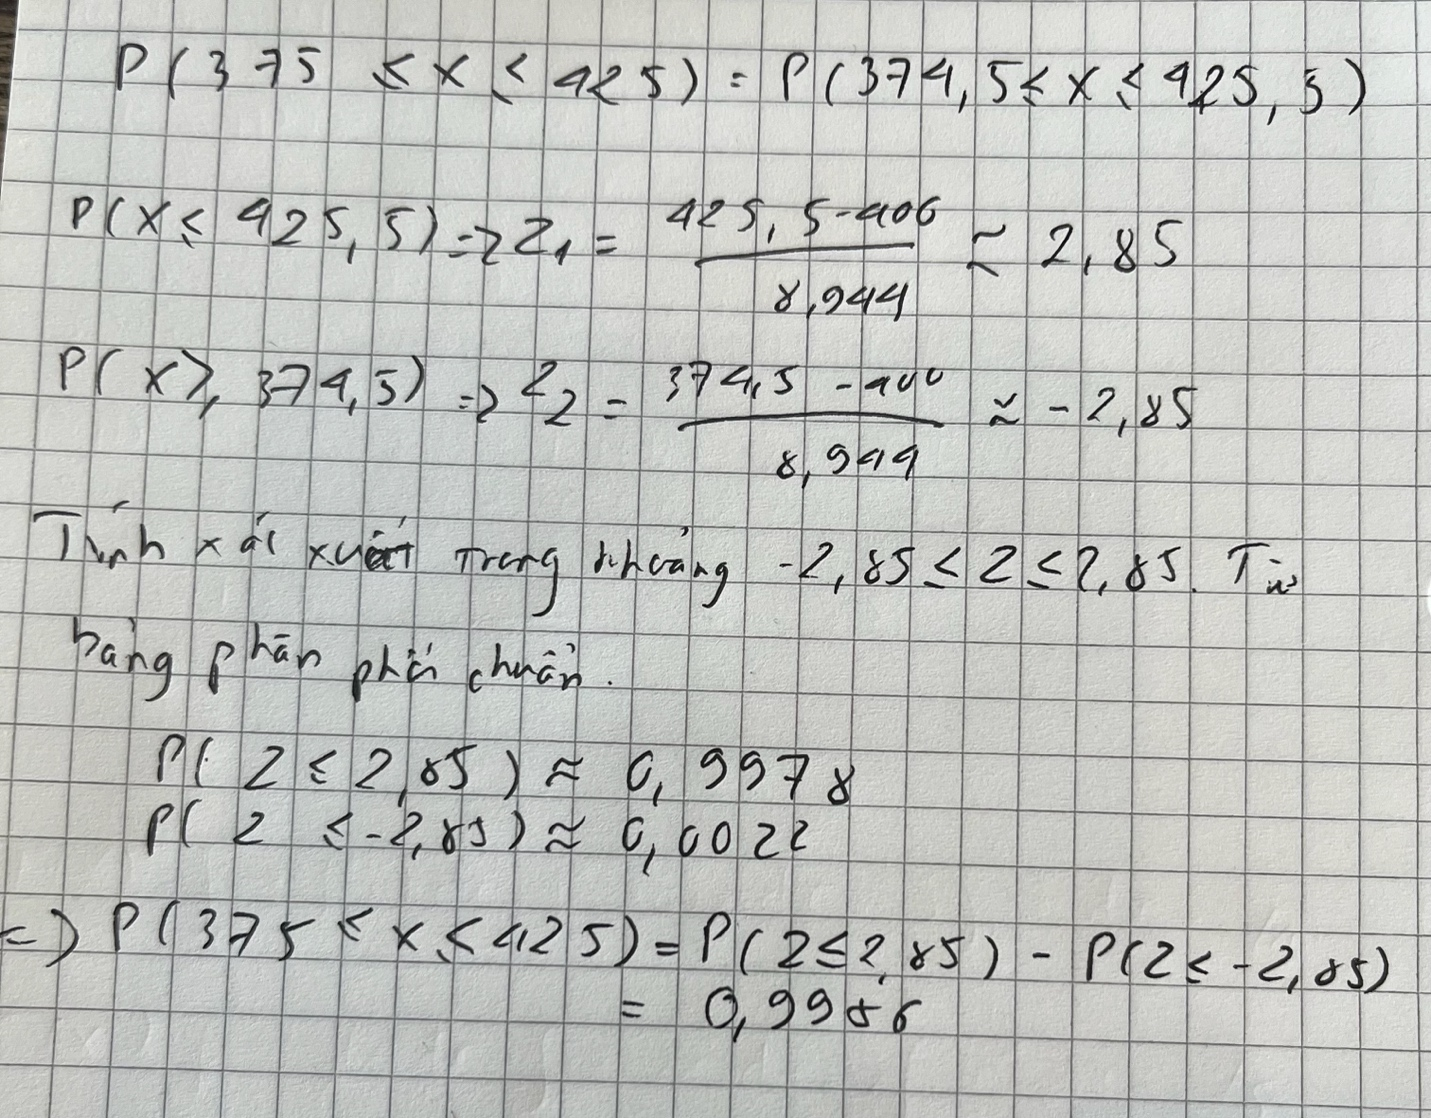 P(375 ≤ X ≤ 425) = P(374,5 ≤ X ≤ 425,5)
P(X ≤ 425,5) => Z₁ = (425,5 - 400) / 8,944 ≈ 2,85
P(X ≥ 374,5) => Z₂ = (374,5 - 400) / 8,944 ≈ -2,85
Tính xác xuất trong khoảng -2,85 ≤ Z ≤ 2,85. Từ
bảng phân phối chuẩn.
P(Z ≤ 2,85) ≈ 0,9978
P(Z ≤ -2,85) ≈ 0,0022
=> P(375 ≤ X ≤ 425) = P(Z ≤ 2,85) - P(Z ≤ -2,85)
= 0,9956